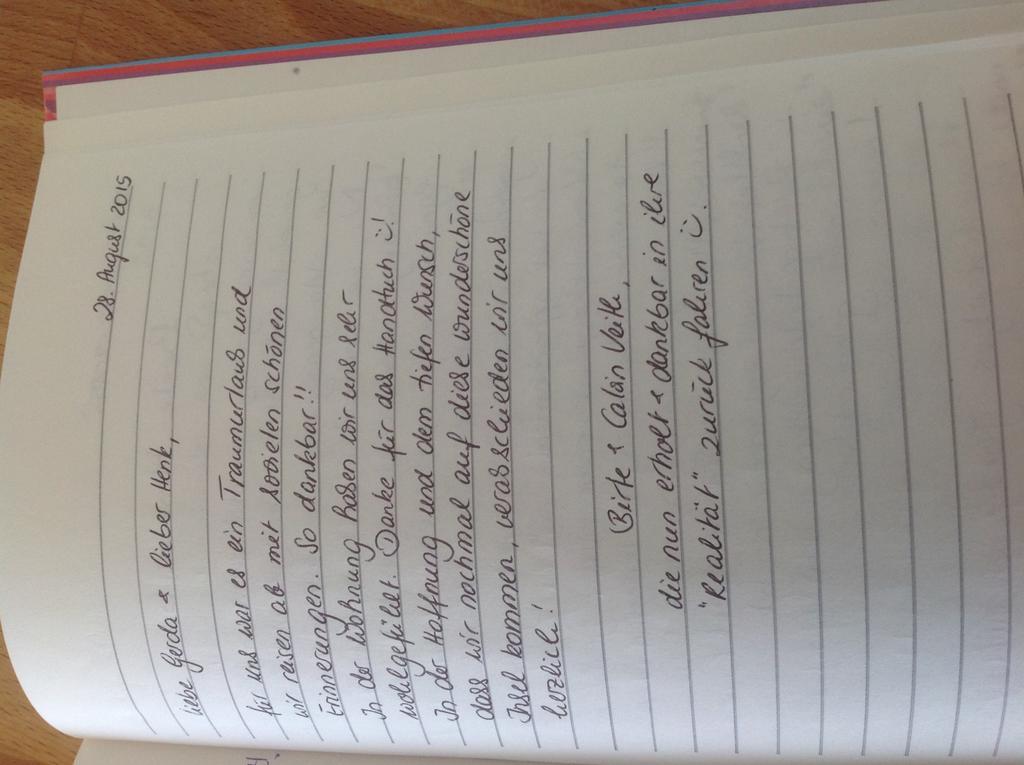 28. August 2015
liebe Gerda & lieber Henk,
für uns war es ein Traumurlaub und
wir reisen ab mit sovielen schönen
Erinnerungen. So dankbar!!
In der Wohnung haben wir uns sehr
wohlgefühlt. Danke für das Handtuch ☺!
In der Hoffnung und dem tiefen Wunsch,
dass wir nochmal auf diese wunderschöne
Insel kommen, verabschieden wir uns
herzlich!
Birte & Calvin Veith,
die nun erholt & dankbar in ihre
"Realität" zurück fahren ☺.